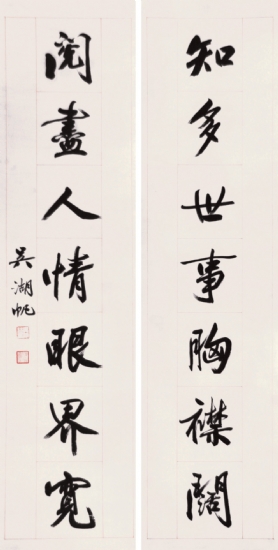 知多世事胸襟闊
閱盡人情眼界寬
吳湖帆